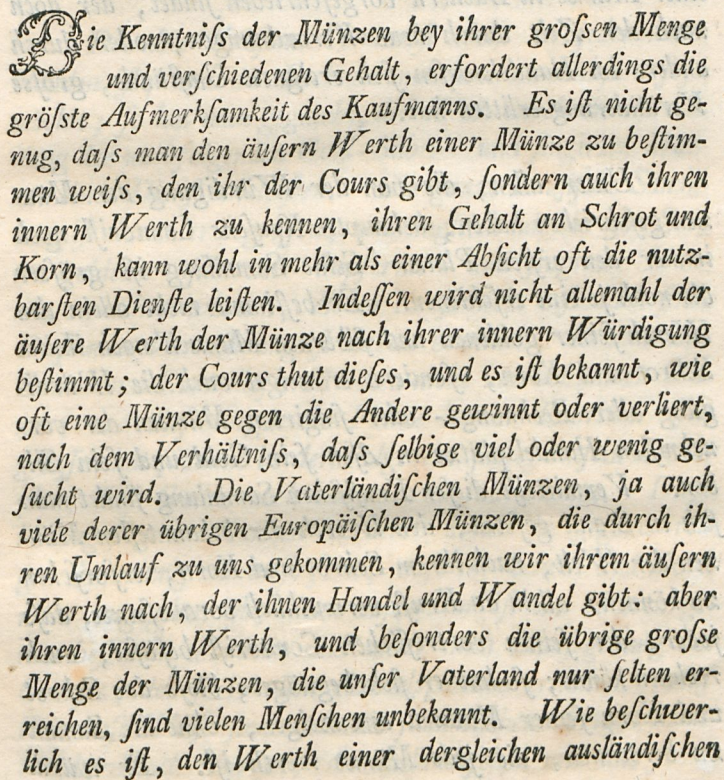 Die Kenntniſs der Münzen bey ihrer groſsen Menge
und verſchiedenen Gehalt, erfordert allerdings die
gröſste Aufmerkſamkeit des Kaufmanns. Es iſt nicht ge-
nug, daſs man den äuſern Werth einer Münze zu beſtim-
men weiſs, den ihr der Cours gibt, ſondern auch ihren
innern Werth zu kennen, ihren Gehalt an Schrot und
Korn, kann wohl in mehr als einer Abſicht oft die nutz-
barſten Dienſte leiſten. Indeſſen wird nicht allemahl der
äuſere Werth der Münze nach ihrer innern Würdigung
beſtimmt; der Cours thut dieſes, und es iſt bekannt, wie
oft eine Münze gegen die Andere gewinnt oder verliert,
nach dem Verhältniſs, daſs ſelbige viel oder wenig ge-
ſucht wird. Die Vaterländiſchen Münzen, ja auch
viele derer übrigen Europäiſchen Münzen, die durch ih-
ren Umlauf zu uns gekommen, kennen wir ihrem äuſern
Werth nach, der ihnen Handel und Wandel gibt: aber
ihren innern Werth, und beſonders die übrige groſse
Menge der Münzen, die unſer Vaterland nur ſelten er-
reichen, ſind vielen Menſchen unbekannt. Wie beſchwer-
lich es iſt, den Werth einer dergleichen ausländiſchen